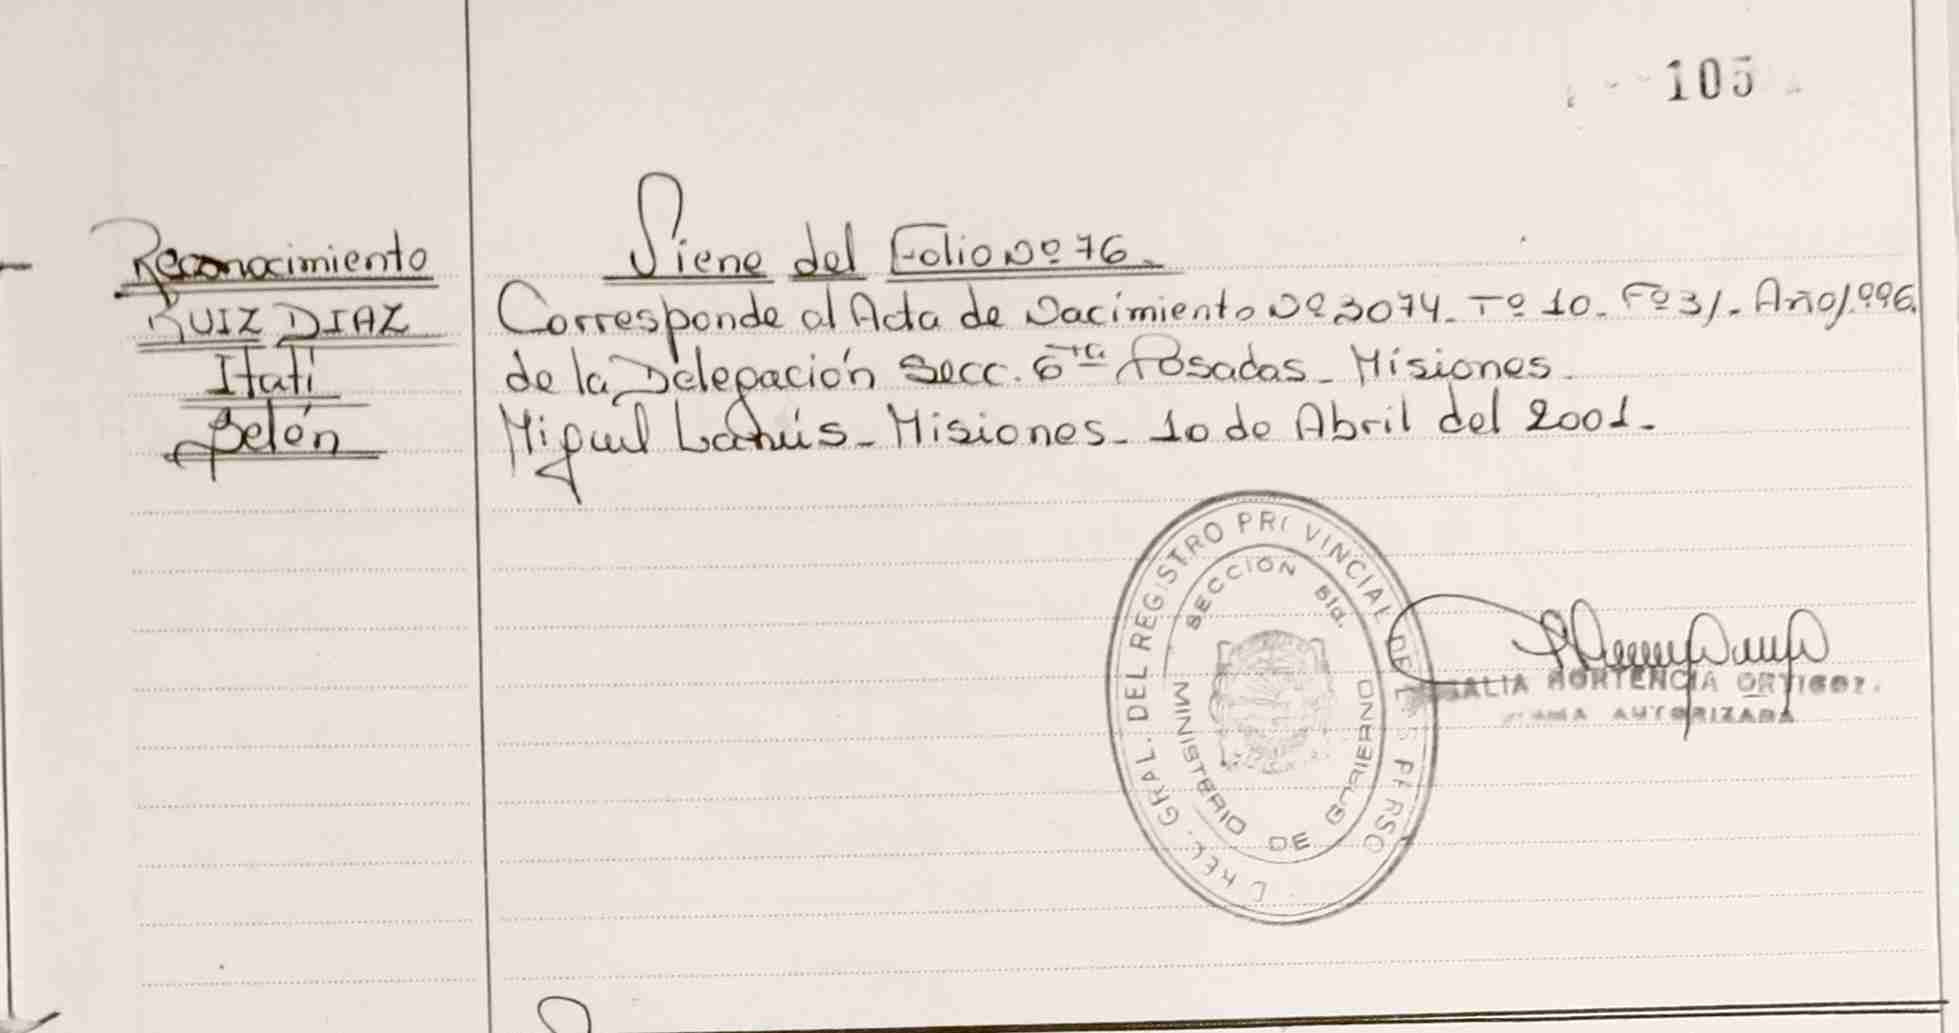 105
Reconocimiento
RUIZ DIAZ
Itatí
Belén
Viene del Folio Nº 76.
Corresponde al Acta de Nacimiento Nº 3074. Tº 10. Fº 31. Año 1.996.
de la Delegación Secc. 6ta Posadas - Misiones.
Miguel Lanús - Misiones - 10 de Abril del 2001.-
GRAL. DEL REGISTRO PROVINCIAL DE L S PERSO
SECCION
MINISTERIO DE GOBIERNO
ALIA HORTENCIA ORTIGOZ
AUTORIZADA